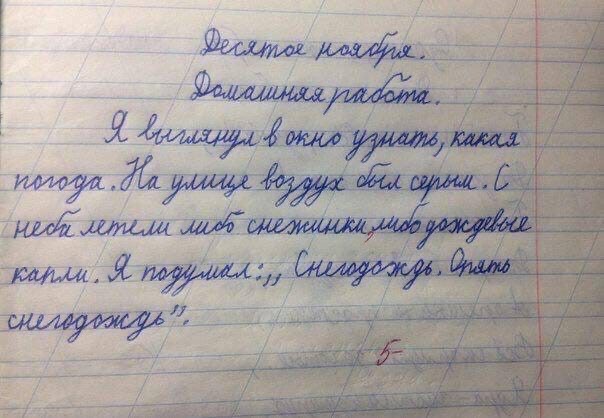 Десятое ноября.
Домашняя работа.
Я выглянул в окно узнать, какая
погода. На улице воздух был серым. С
неба летели либо снежинки, либо дождевые
капли. Я подумал: „Снегодождь. Опять
снегодождь”.
5-